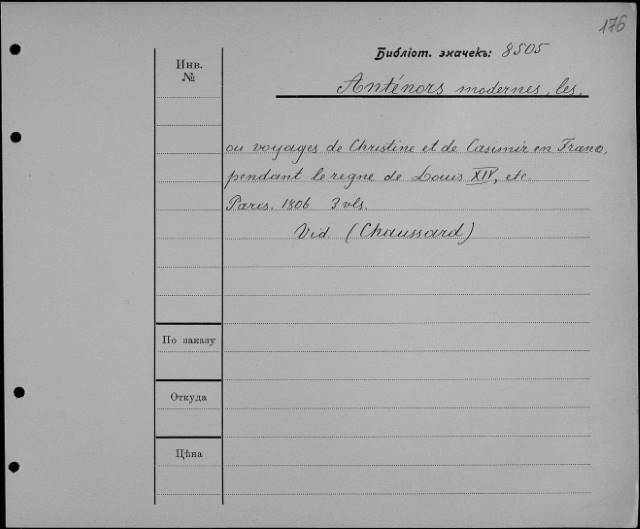 176
Библіот. значекъ: 8505
Инв.
№
Anténors modernes, les,
ou voyages de Christine et de Casimir en France,
pendant le regne de Louis XIV, etc.
Paris. 1806. 3 vls.
Vid. (Chaussard)
По заказу
Откуда
Цѣна